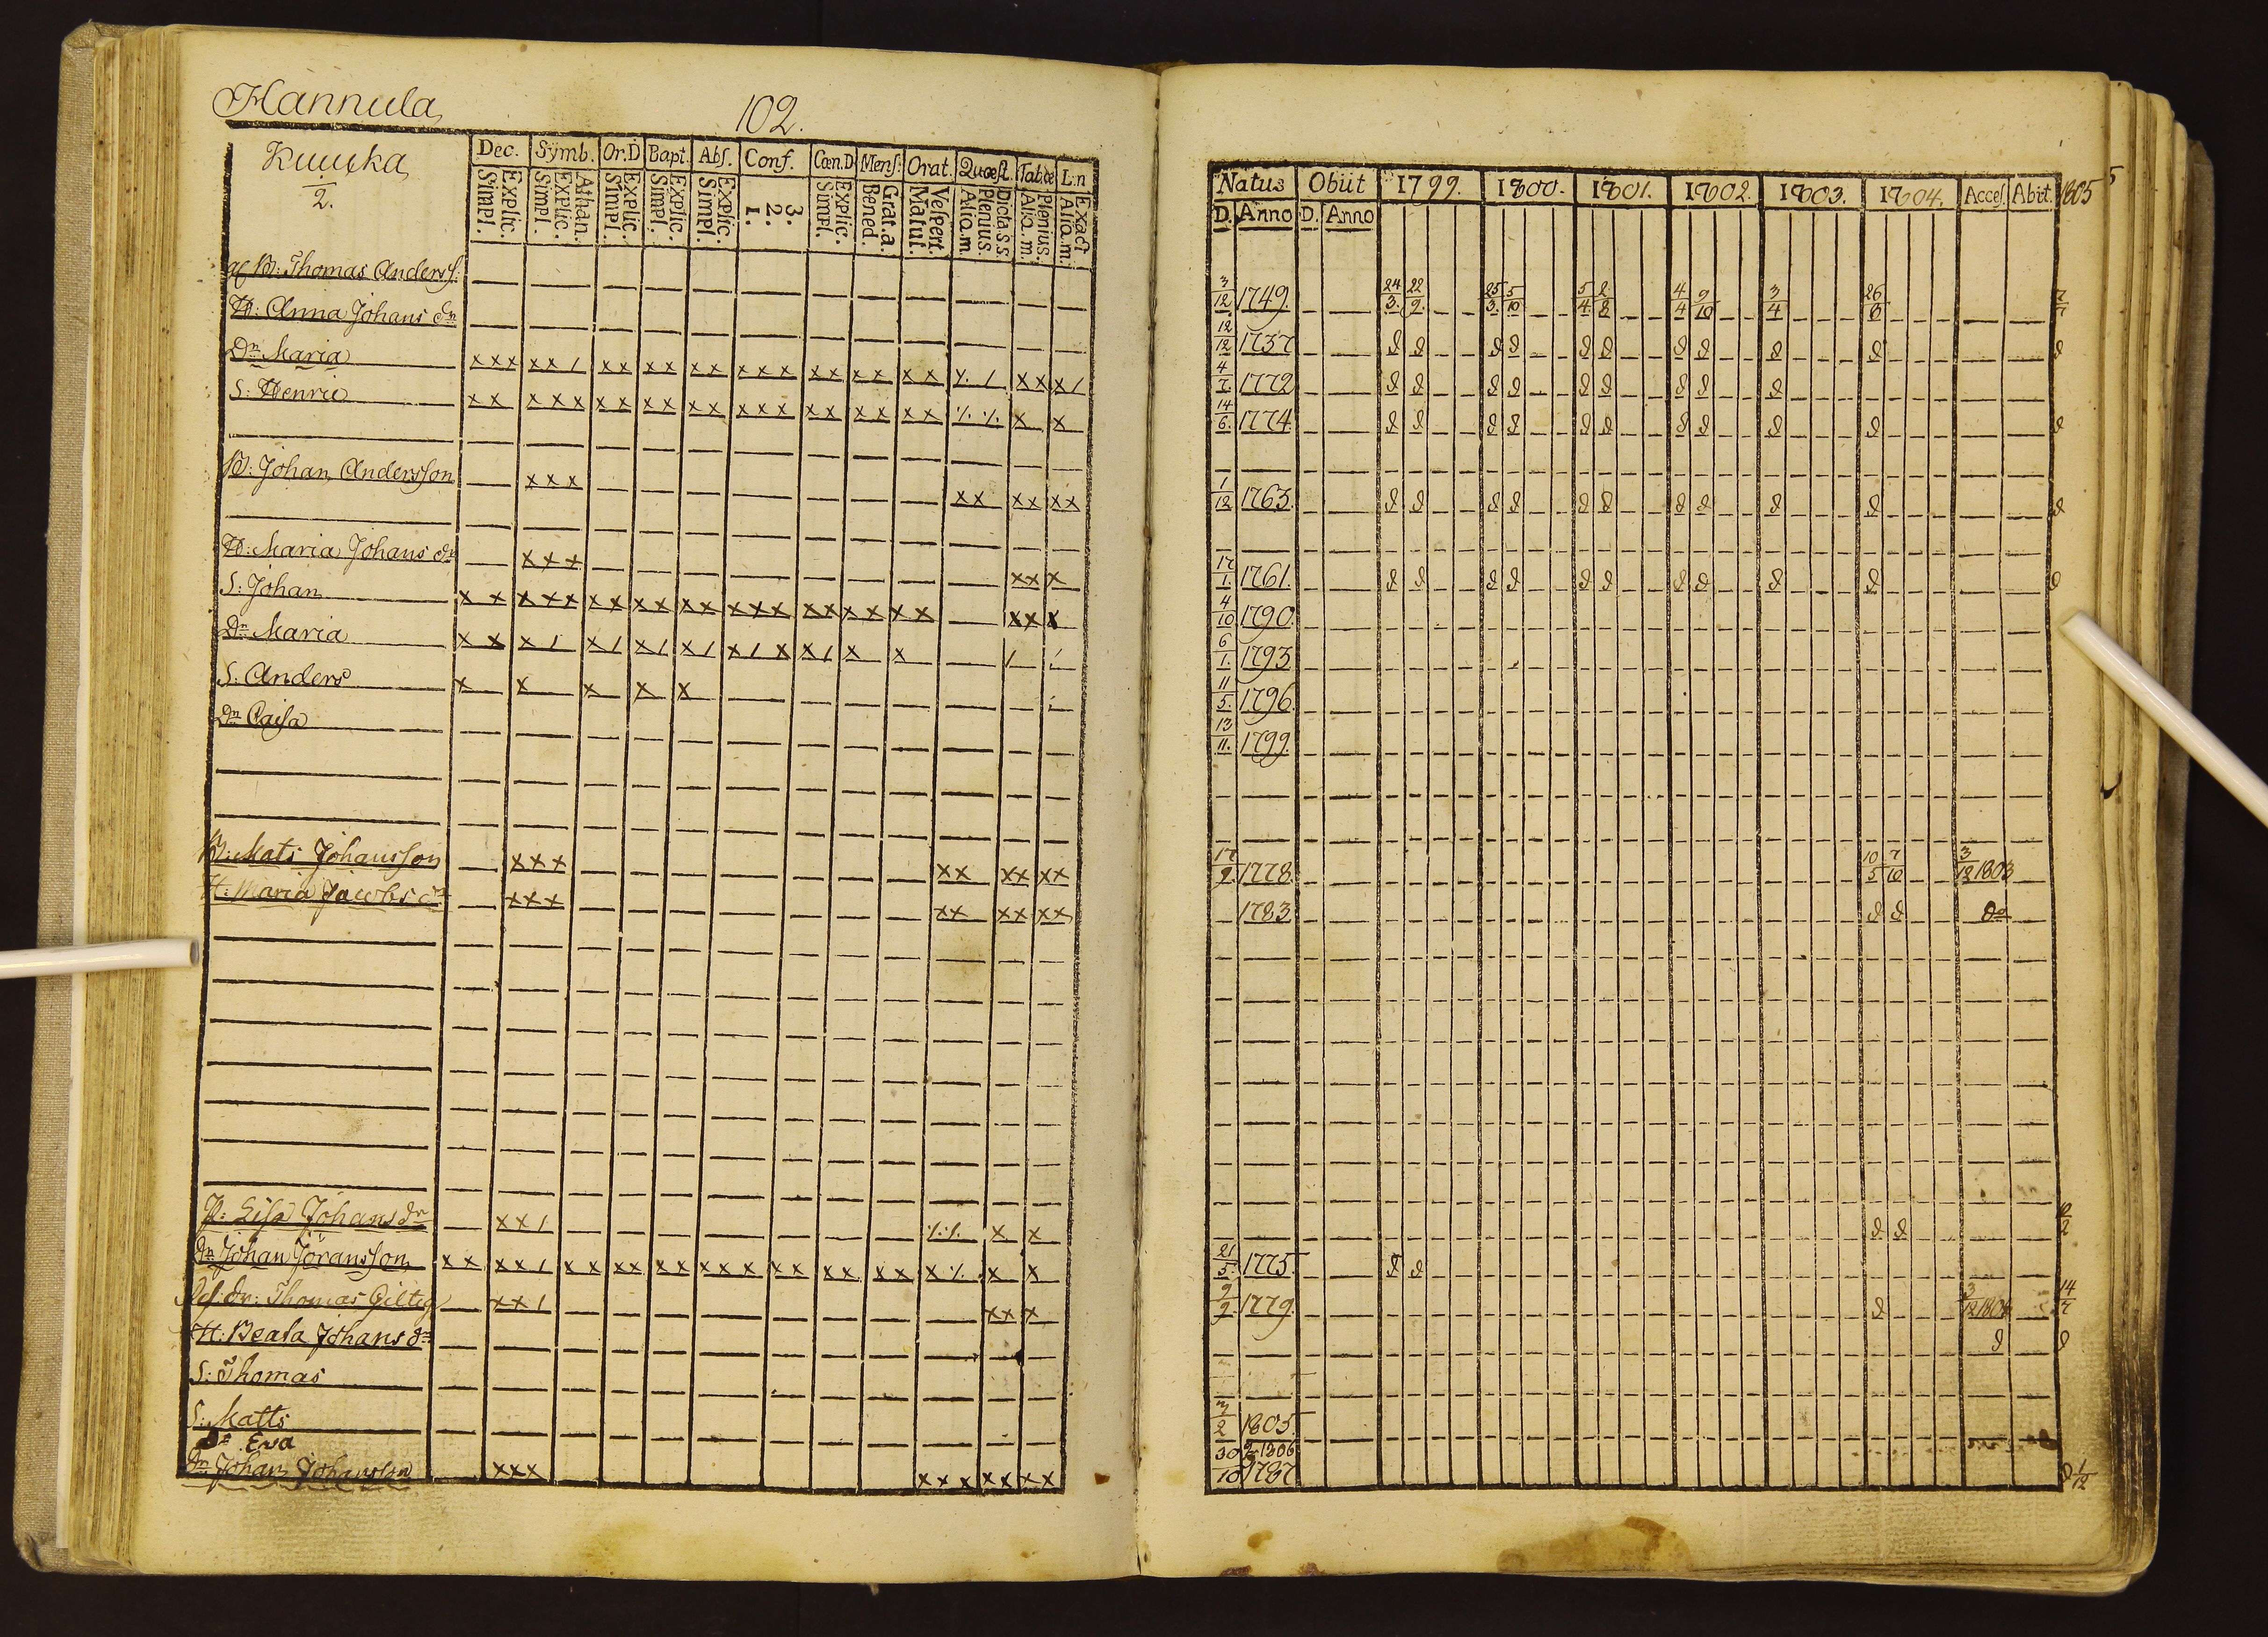 Hannula
102.
Kuuška
1/2.
Dec. Symb. Or.D Bapt. Abs. Conf. Cœn.D Mens: Orat. Quæst. Tab.œ L:n
Simpl. Explic. Simpl. Explic. Athan. Simpl. Explic. Simpl. Explic. Simpl. Explic. 1. 2. 3. Simpl. Explic. Bened. Grat.a. Matut. Vespert. Alio.m. Plenius. Dicta.s.s Alio.m. Plenius. Alio.m. Exact
B: Thomas Anders S.
H: Anna Johans dr
Dr Maria xxx xx/ xx xx xx xxx xx xx xx /. / xx x/
S: Henric xx xxx xx xx xx xxx xx xx xx /. /. x x
B: Johan Andersson xxx xx xx xx
H: Maria Johans dr xxx xx x
S: Johan x x xxx xx xx xx xxx xx xx xx xx x
Dr Maria x x x/ x/ x/ x/ x/x x/ x x / /
S: Anders x x x x x
Dr Caisa
B: Mats Johansson xxx xx xx xx
H: Maria Jacobs dr xxx xx xx xx
P: Lisa Johans dr xx/ /. /. x x
Dr Johan Göransson xx xx/ xx xx xx xxx xx xx xx x/. x x
Dr: Thomas Giltig xx/ xx x
H: Beata Johans dr
S: Thomas
S: Matts
Dr Eva
Dr Johan Johansson xxx xxx xx xx
Natus Obiit 1799. 1800. 1801. 1802. 1803. 1804. Acces. Abiit. 1805
D. Anno D. Anno
3/12 1749. 24/3. 22/9. 25/3. 5/10 5/4. 2/8 4/4 9/10 3/4 26/8 7/7
12/12 1737 d d d d d d d d d d d
4/7. 1772 d d d d d d d d d
14/6. 1774. d d d d d d d d d d d
1/12 1763. d d d d d d d d d d d
17/1. 1761. d d d d d d d d d d d
4/10. 1790.
6/1. 1793
11/5. 1796.
13/11. 1799.
17/9. 1778. 10/5 7/10 3/12 1803
1783 d d do
d d
21/5. 1775 d d
9/9. 1779. d 14/7
d d
3/2 1805.
1806
1787 d 1/12